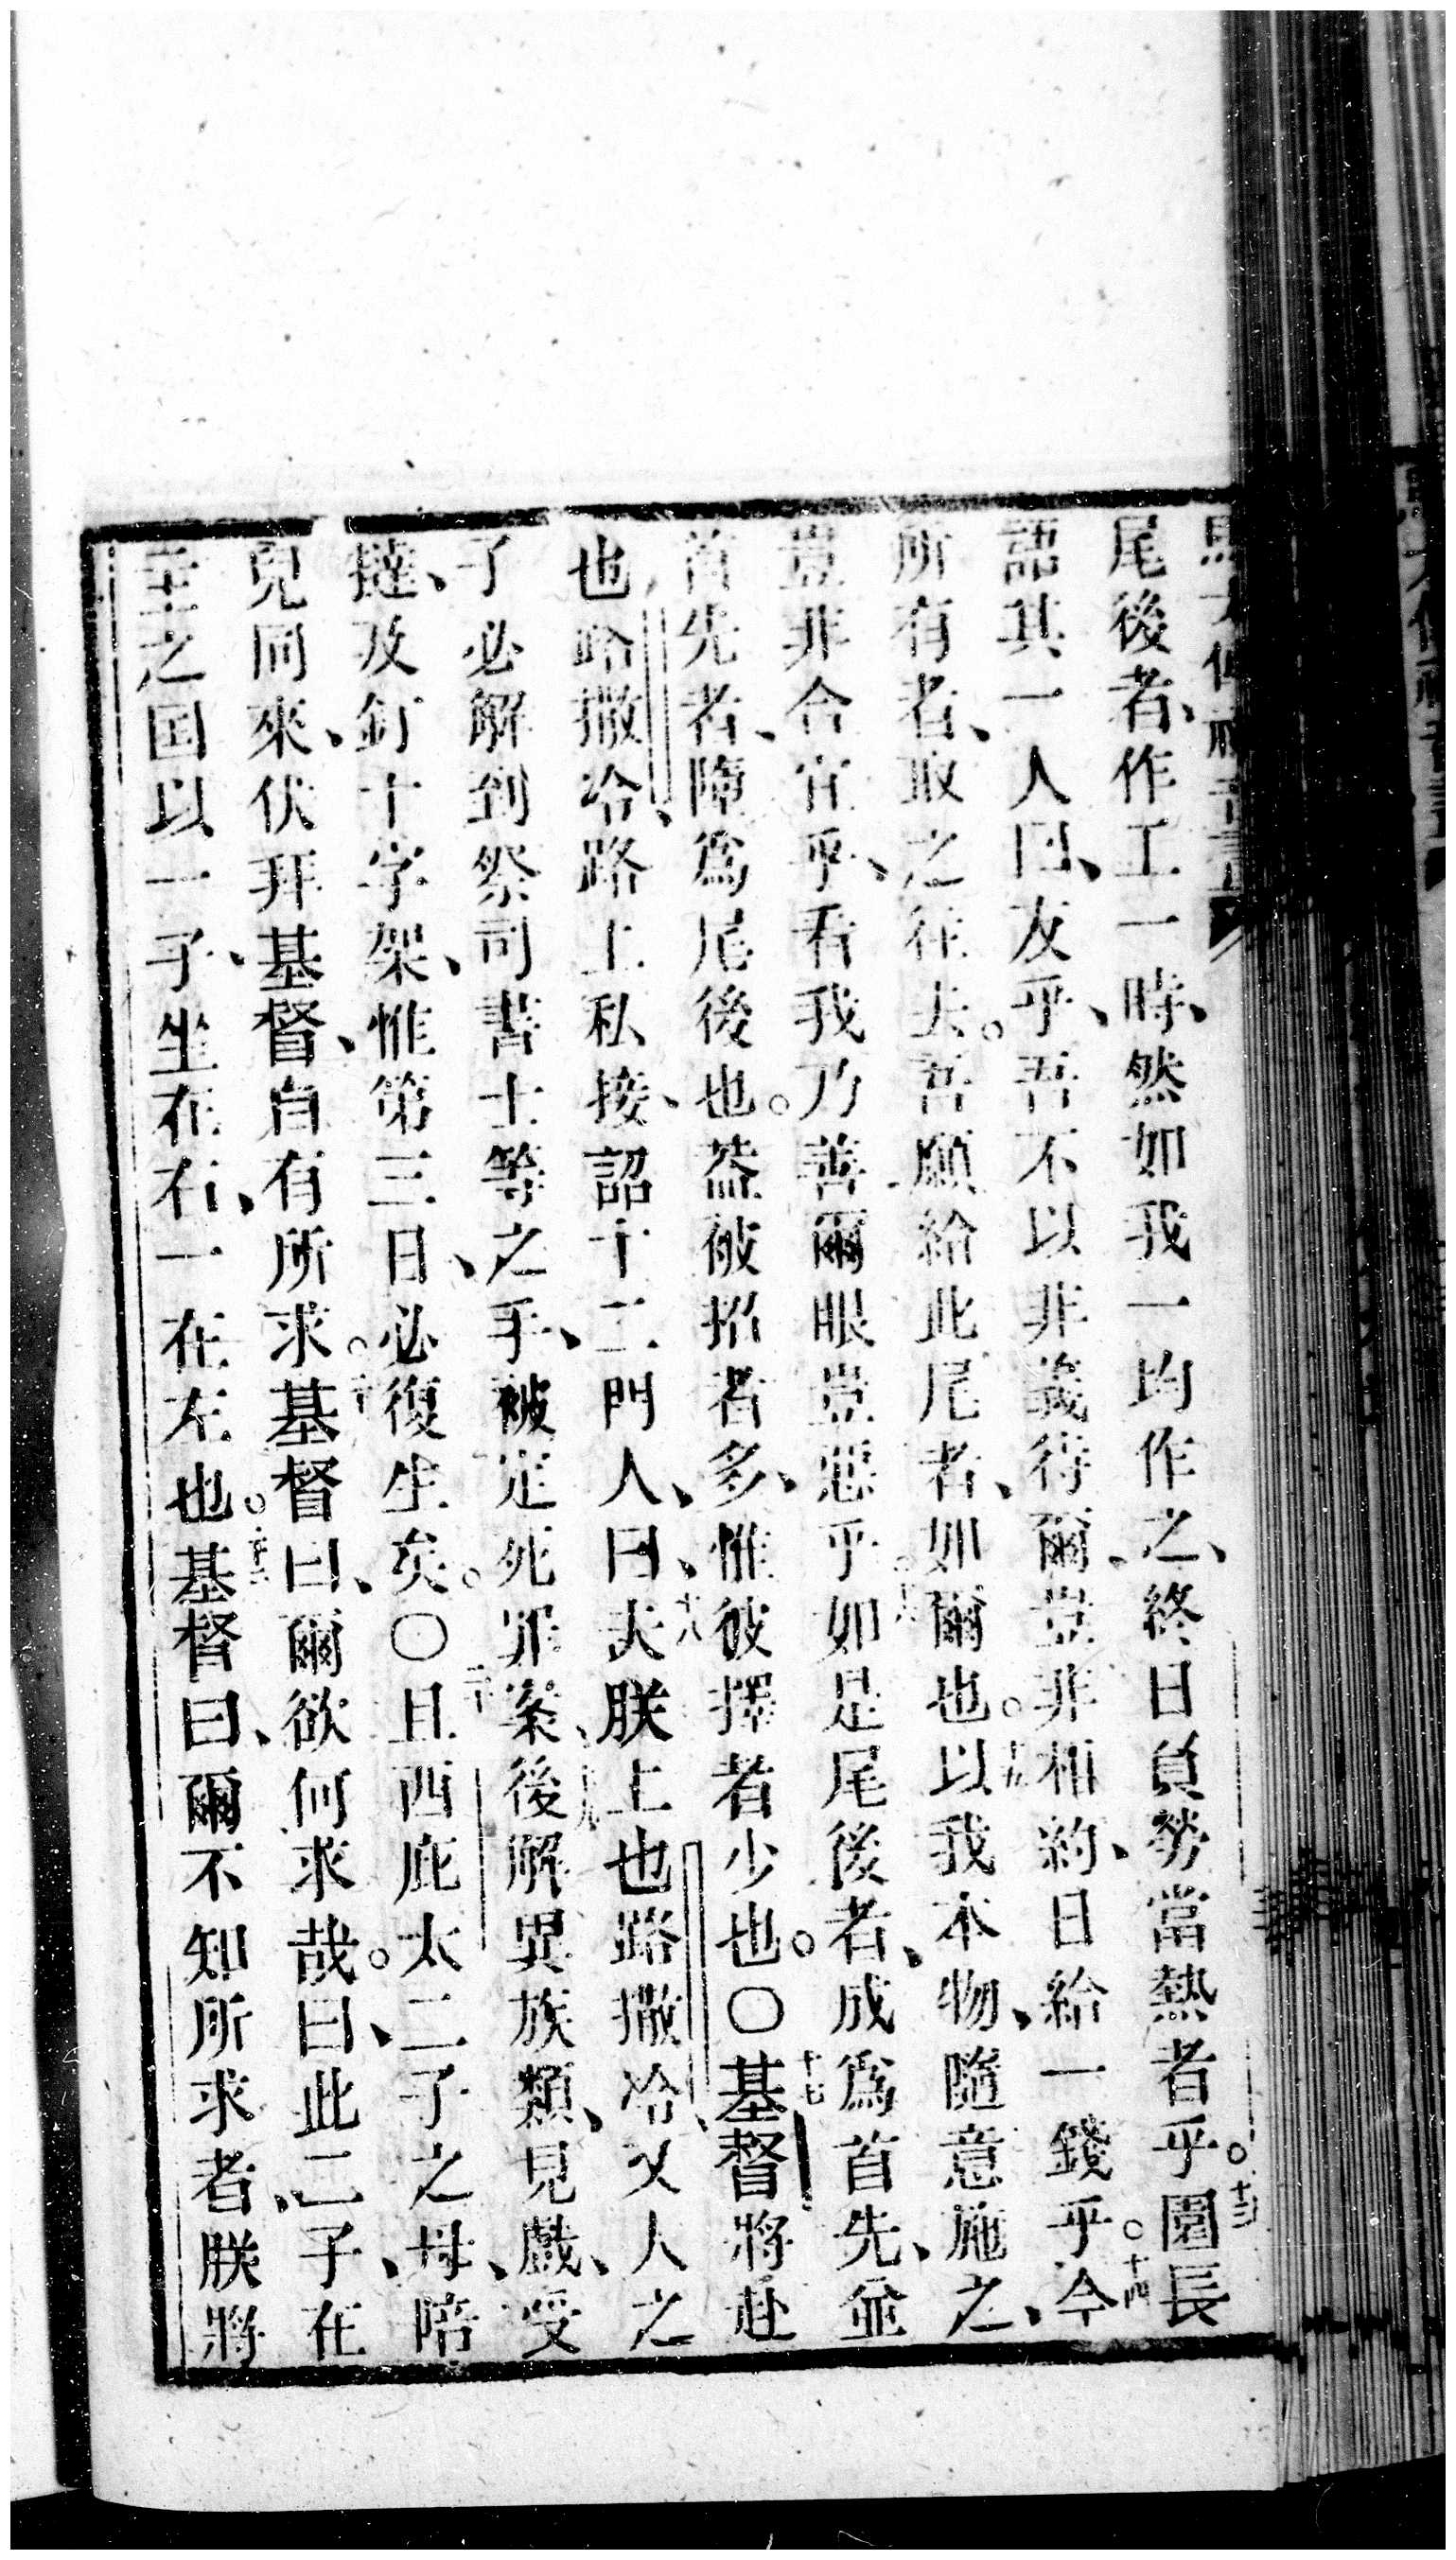 尾後者、作工一時、然如我一均作之、終日負勞當熱者乎。十三園長
語其一人曰、友乎、吾不以非義待爾、豈非相約、日給一錢乎。十四今
所有者、取之往去。吾願給此尾者、如爾也。十五以我本物、隨意施之、
豈非合宜乎、看我乃善、爾眼豈惡乎。十六如是尾後者、成爲首先、並
首先者、障爲尾後也。葢被招者多、惟彼擇者少也。〇十七基督將赴
也路撒冷、路上私接、詔十二門人、曰、十八夫朕上也路撒冷、乂人之
子必解到祭司書士等之手、被定死罪案、十九後解異族類、見戲、受
撻、及釘十字架、惟第三日、必復生矣。〇二十且西庇太二子之母、陪
兒同來、伏拜基督、自有所求。二十一基督曰、爾欲何求哉。曰、此二子、在
主之国以一子、坐在右、一在左也。二十二基督曰、爾不知所求者、朕將